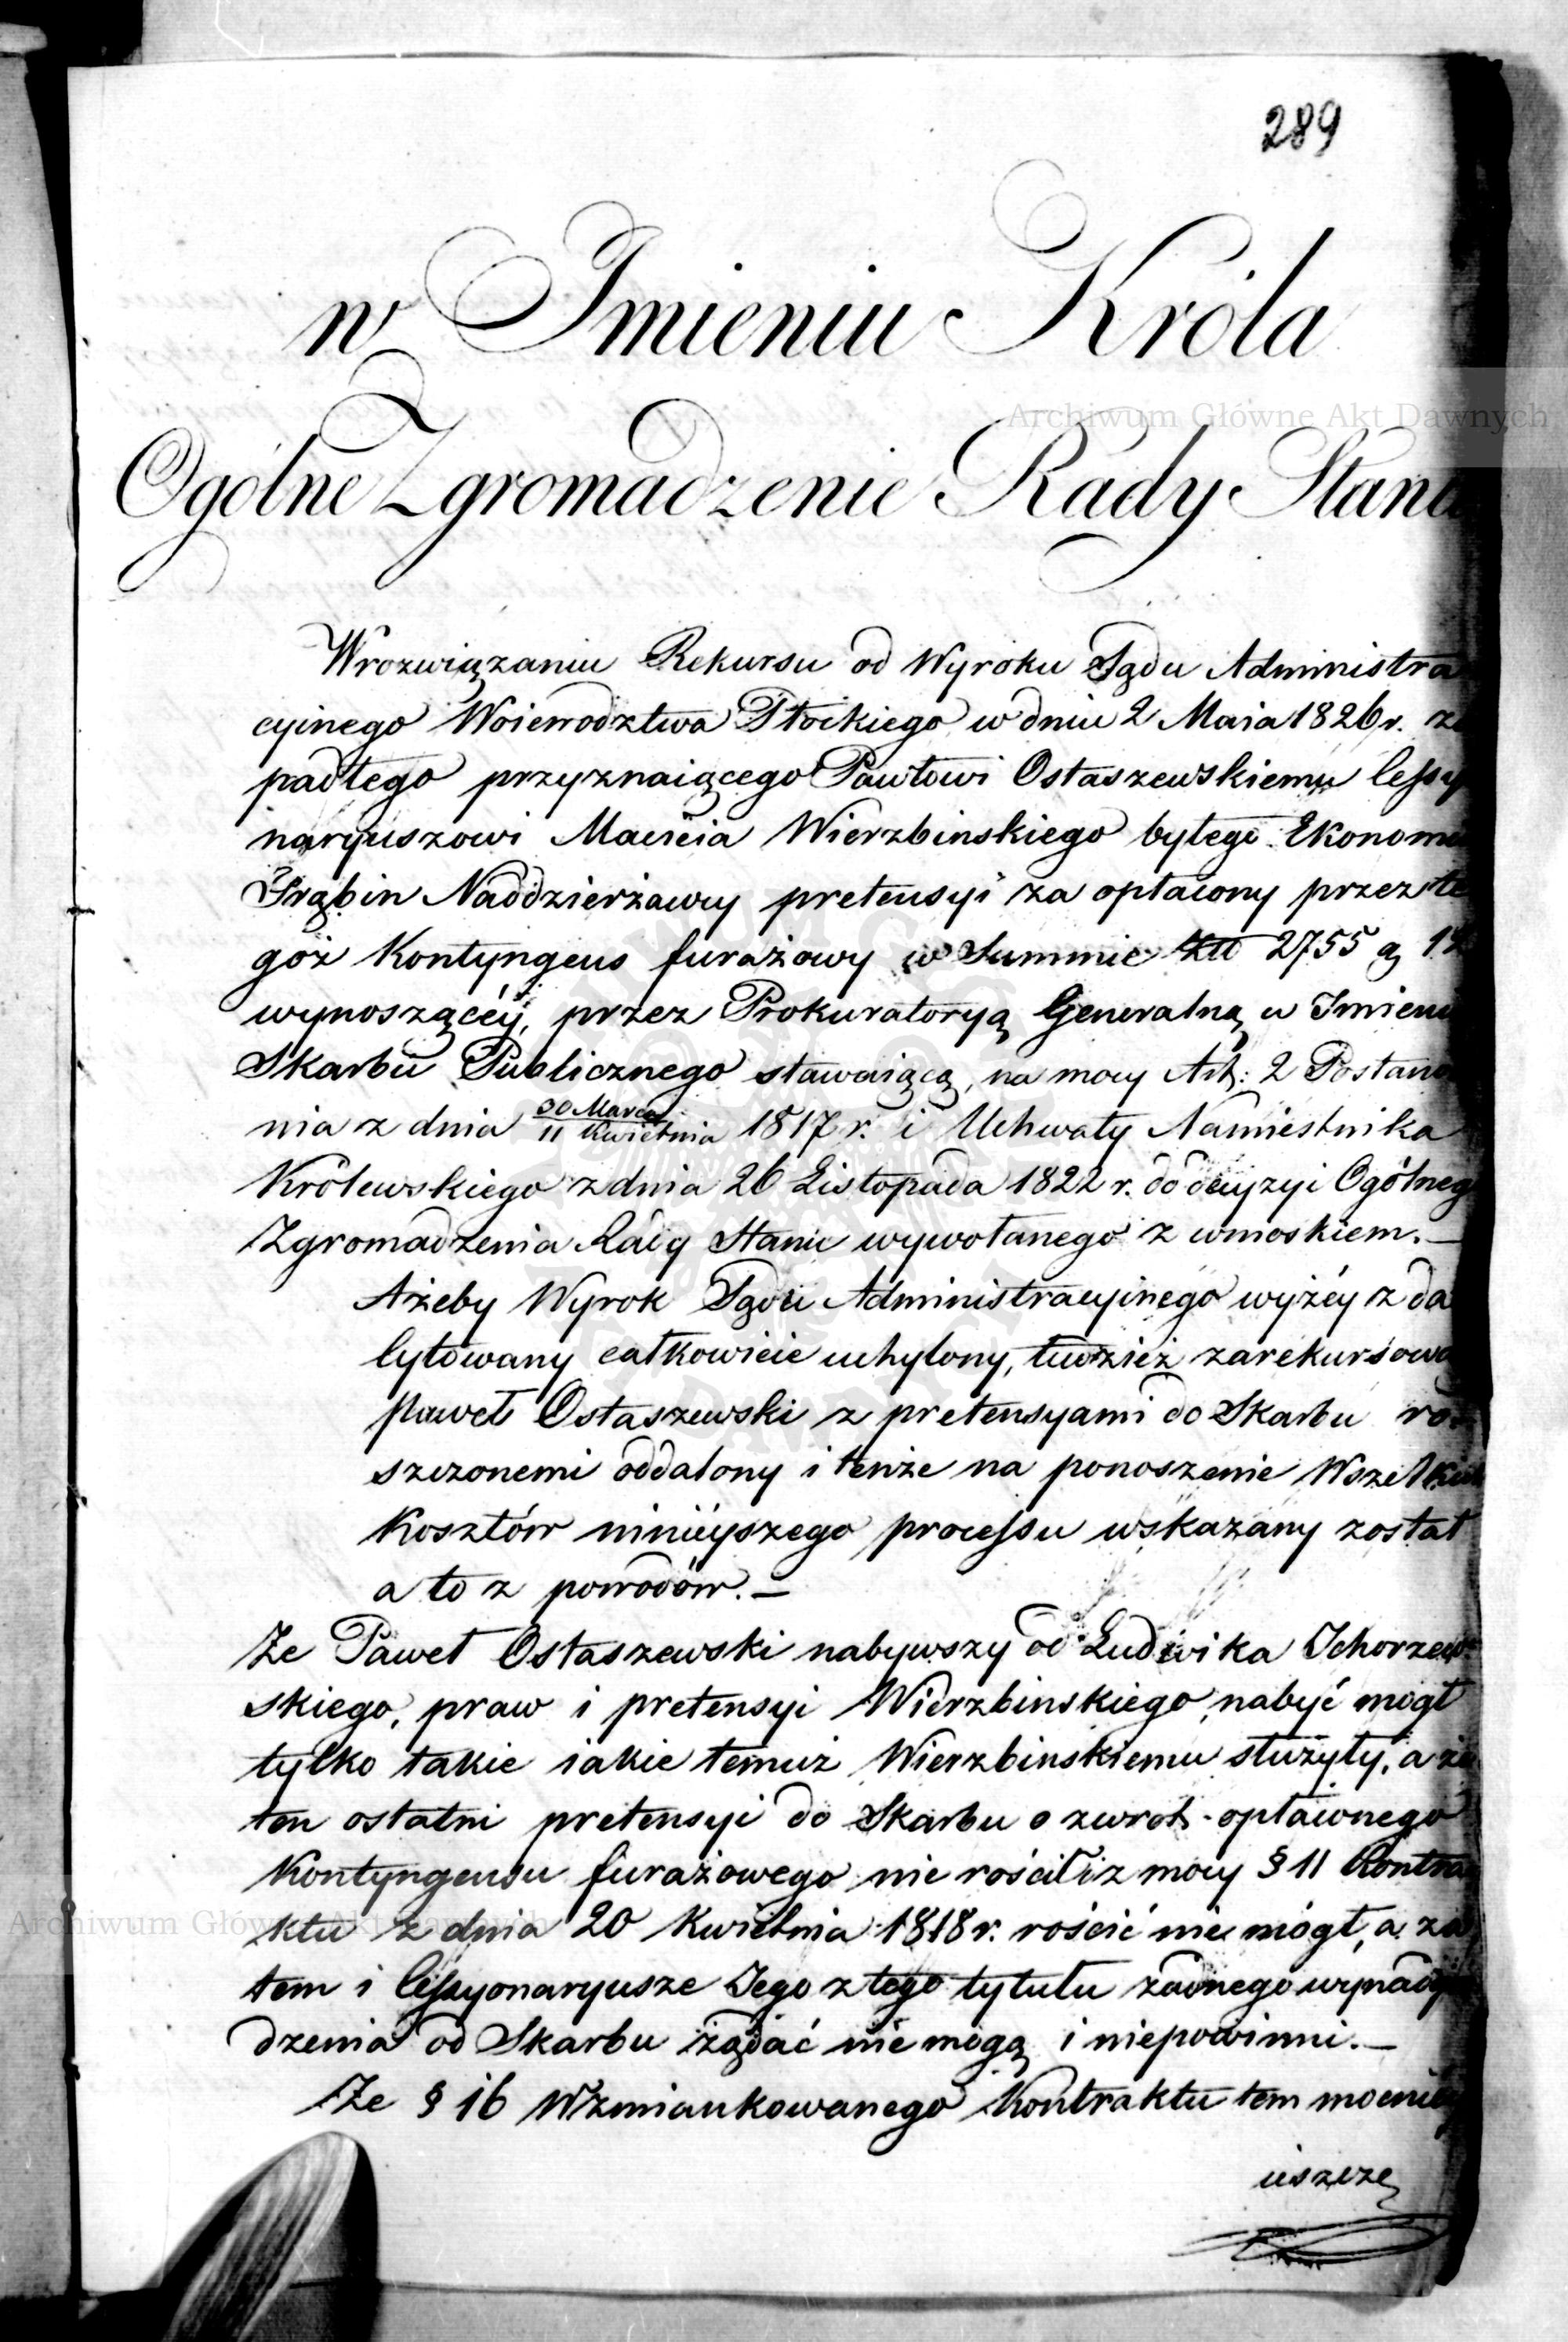 289
w Imieniu Króla
Ogólne Zgromadzenie Rady Stanu
Wrozwiązaniu Rekursu od Wyroku Sądu Administra
cyinego Woiewodztwa Płockiego w dniu 2 Maia 1826 r. za
padłego przyznaiącego Pawłowi Ostaszewskiemu Cessyo
naryuszowi Macieia Wierzbinskiego byłego Ekonomii
Naddzierżawcy pretensyi za opłacony przez te
goż Kontyngens furażowy w Summie Złł 2755 g
wynoszącéy, przez Prokuratoryą Generalną w Imieniu
Skarbu Publicznego stawaiącą, na mocy Art: 2 Postano
nia z dnia 30 Marca / 11 Kwietnia 1817 r. i Uchwały Namiestnika
Królewskiego z dnia 26 Listopada 1822 r. do decyzyi Ogólnego
Zgromadzenia Rady Stanu wywołanego z wnioskiem. —
Ażeby Wyrok Sądu Administracyinego wyżéy z da
ty cytowany całkowicie uchylony, tudzież zarekursowa
Paweł Ostaszewski z pretensyami do Skarbu ro
szczonemi oddalony i tenże na ponoszenie Wszelkich
Kosztów ninieyszego processu wskazany został
a to z powodów. —
Że Paweł Ostaszewski nabywszy od Ludwika Ichorzew
skiego, praw i pretensyi Wierzbinskiego, nabyć mógł
tylko takie iakie temuż Wierzbinskiemu służyły, a że
ten ostatni pretensyi do Skarbu o zwrot opłaconego
Kontyngensu furażowego nie rościł i z mocy § 11 Kontra
ktu z dnia 20 Kwietnia 1818 r. rościć nie mógł, a za
tem i Cessyonaryusze Jego z tego tytułu żadnego wynadgro
dzenia od Skarbu żądać nie mogą i niepowinni. —
Że § 16 Wzmiankowanego Kontraktu tem mocniéy
ieszcze
Archiwum Główne Akt Dawnych
Archiwum Główne Akt Dawnych